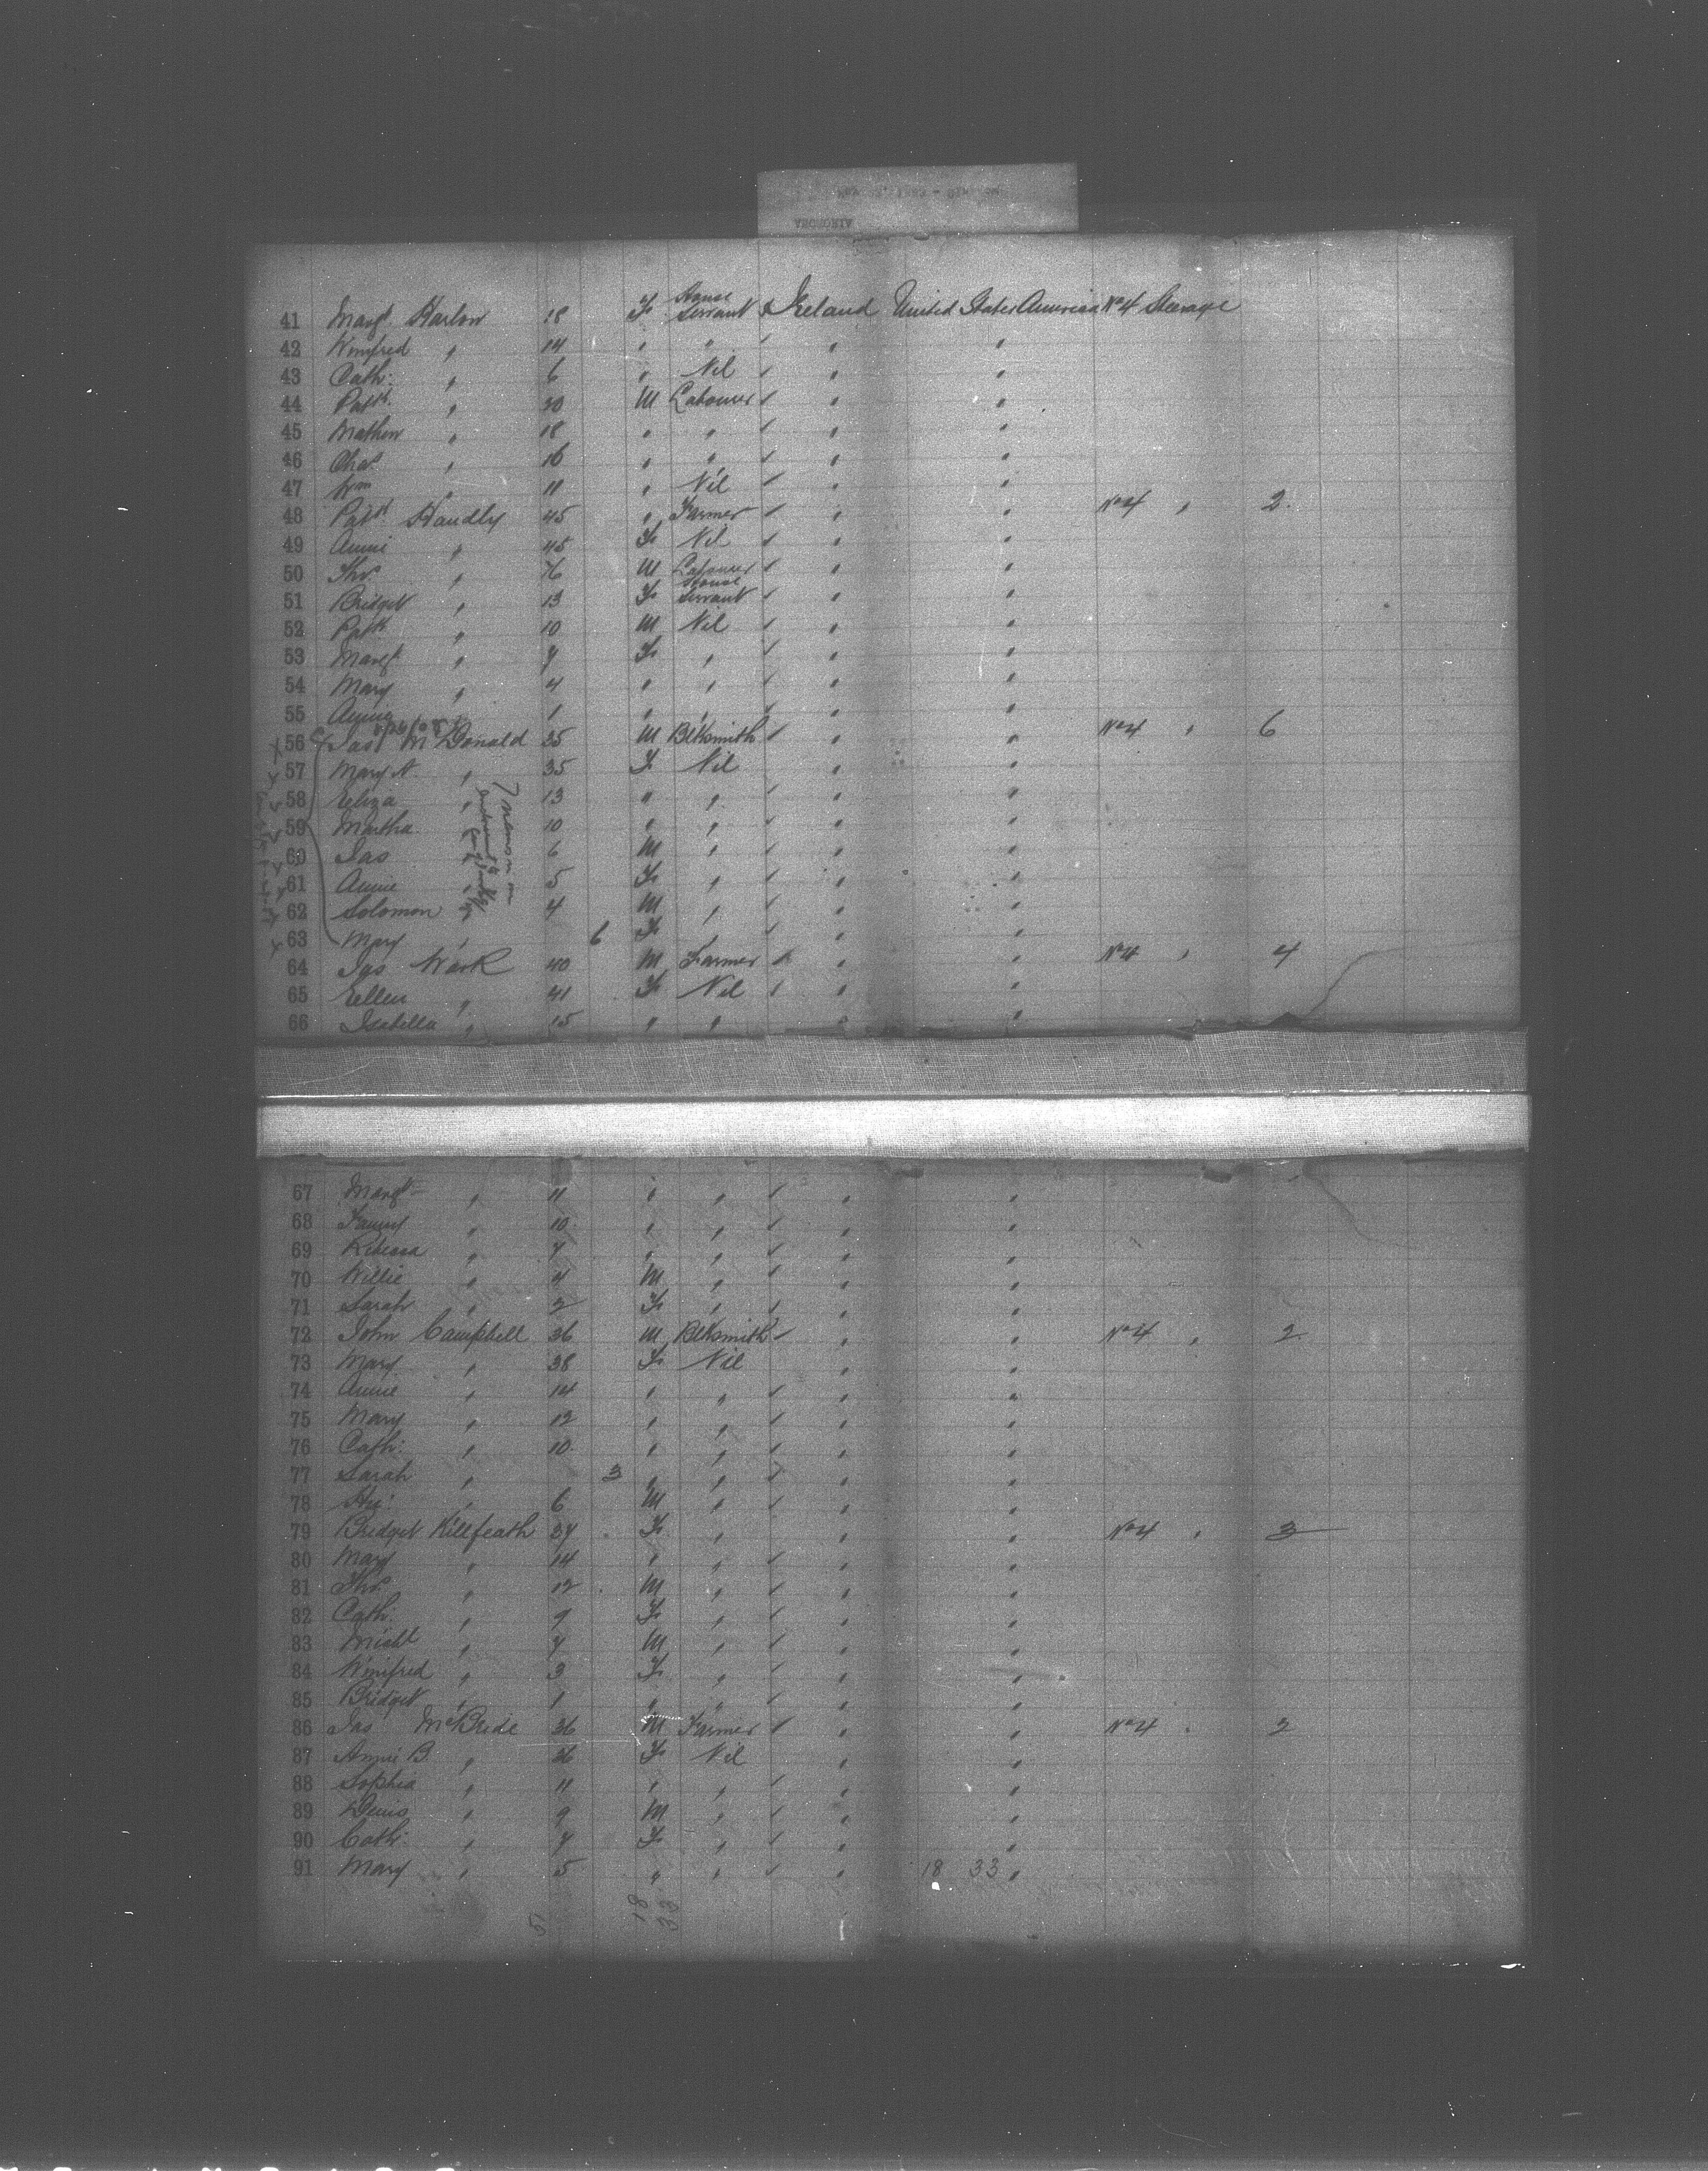 41 Margt Harlow 18 F House Servant Ireland United States America No 4 Steerage
42 Winifred " 14 " " " "
43 Cath: " 6 " Nil " "
44 Patk " 20 M Labourer " "
45 Mathew " 18 " " " "
46 Chas " 16 " " " "
47 Wm " 11 " Nil " "
48 Patk Handly 45 " Farmer " " No 4 " 2
49 Annie " 45 F Nil " "
50 Thos " M Labourer " "
51 Bridget " 13 F House Servant " "
52 Patk " 10 M Nil " "
53 Margt " 7 F " " "
54 Mary " 4 " " " "
55 Annie " 1 " " " "
56 Jas McDonald 35 M Blksmith " " No 4 " 6
57 Mary A. " 35 F Nil " "
58 Eliza " 13 " " " "
59 Martha " 10 " " " "
60 Jas " 6 M " " "
61 Annie " 5 F " " "
62 Solomon " 4 M " " "
63 Mary " 6 F " " "
64 Jas Wark 40 M Farmer " " No 4 " 4
65 Ellen " 41 F Nil " "
66 Isabella " 15 " " " "
67 Margt " 11 " " " "
68 Fanny " 10 " " " "
69 Rebecca " 7 " " " "
70 Willie " 4 M " " "
71 Sarah " 2 F " " "
72 John Campbell 36 M Blksmith " " No 4 " 2
73 Mary " 38 F Nil " "
74 Annie " 14 " " " "
75 Mary " 12 " " " "
76 Cath: " 10 " " " "
77 Sarah " 3 " " " "
78 Hy: " 6 M " " "
79 Bridget Killfeath 37 F " " " No 4 " 3
80 Mary " 14 " " " "
81 Thos " 12 M " " "
82 Cath: " 9 F " " "
83 Michl " 7 M " " "
84 Winifred " 3 F " " "
85 Bridget " 1 " " " "
86 Jas McBride 36 M Farmer " " No 4 " 2
87 Annie B. " 36 F Nil " "
88 Sophia " 11 " " " "
89 Denis " 9 M " " "
90 Cath: " 7 F " " "
91 Mary " 5 " " " 18 33 "
51 18 33